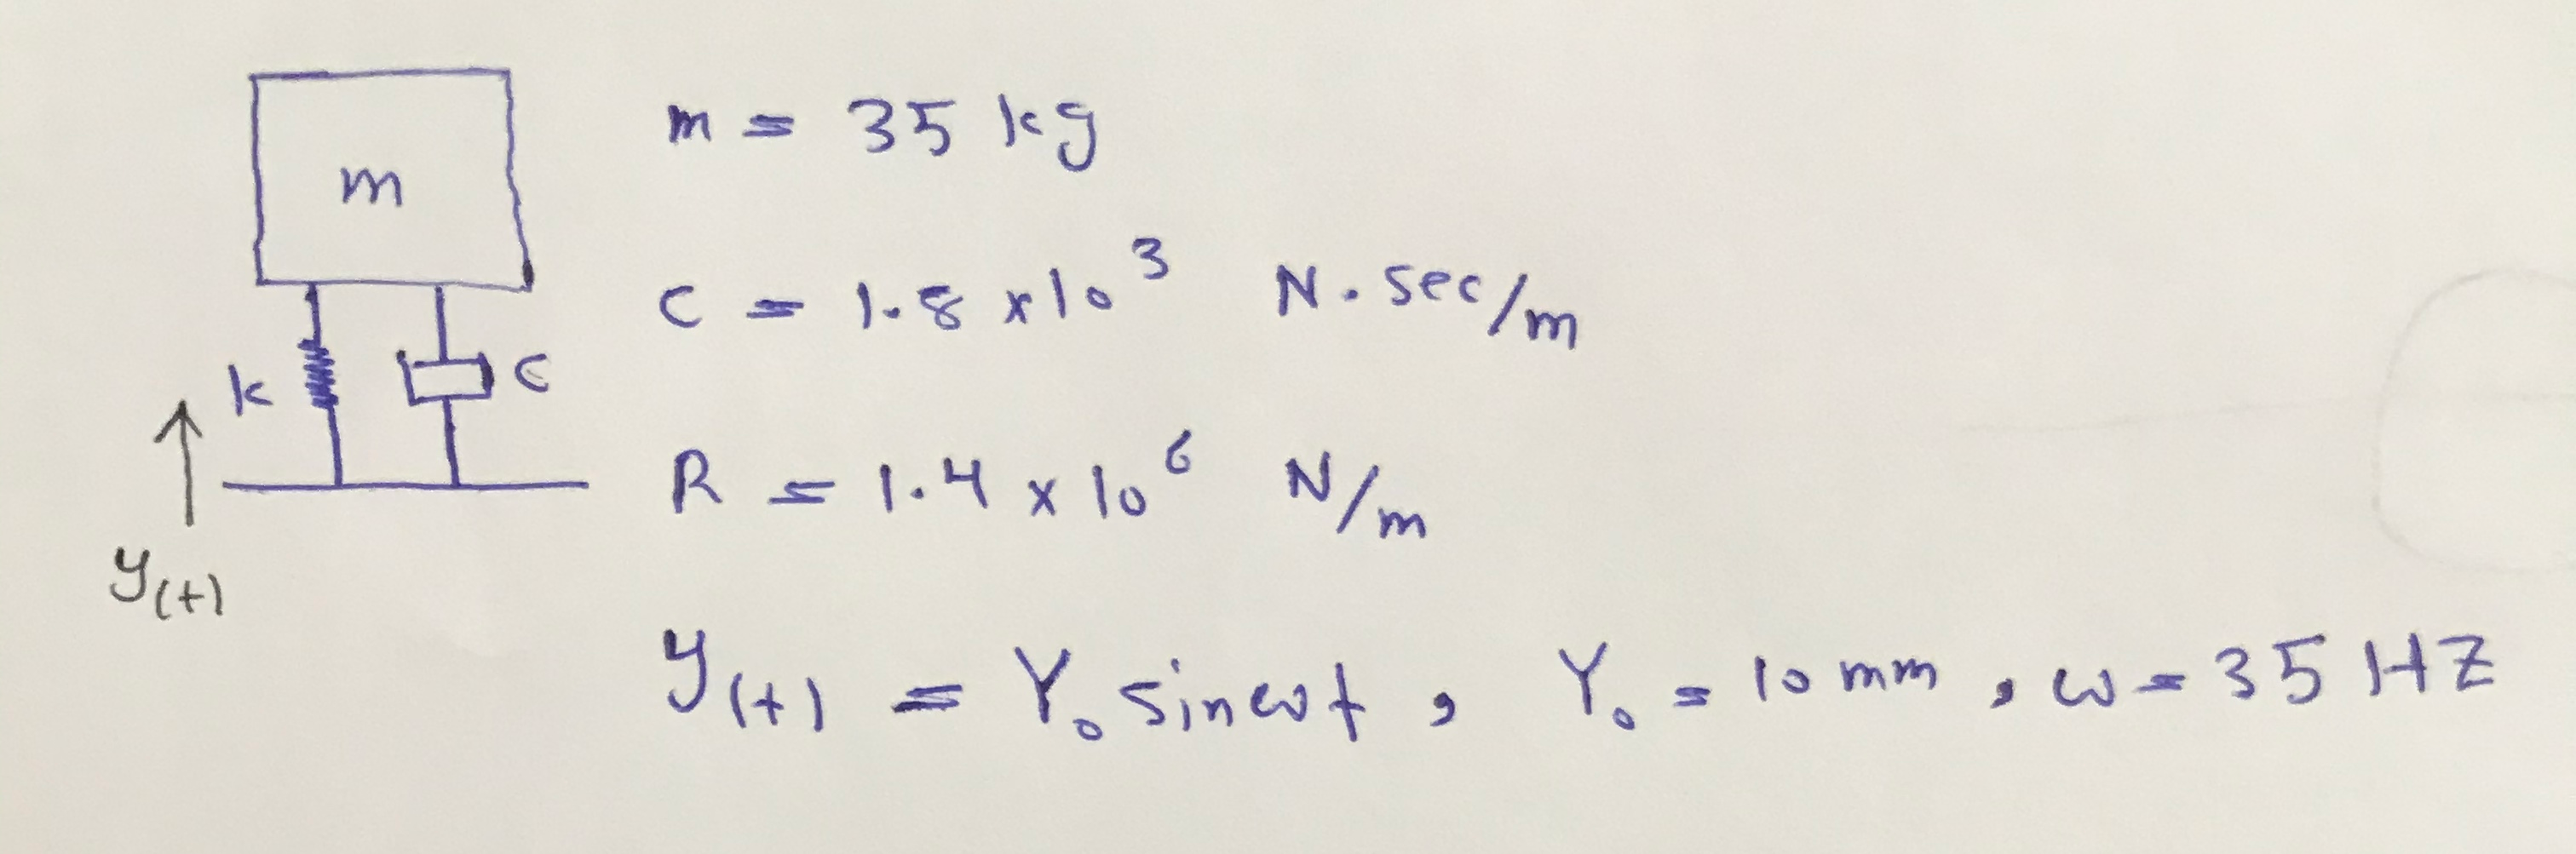 m
k
c
y(t)
m = 35 kg
c = 1.8 x 10³ N.sec/m
R = 1.4 x 10⁶ N/m
y(t) = Y₀ sin ωt , Y₀ = 10 mm , ω = 35 HZ